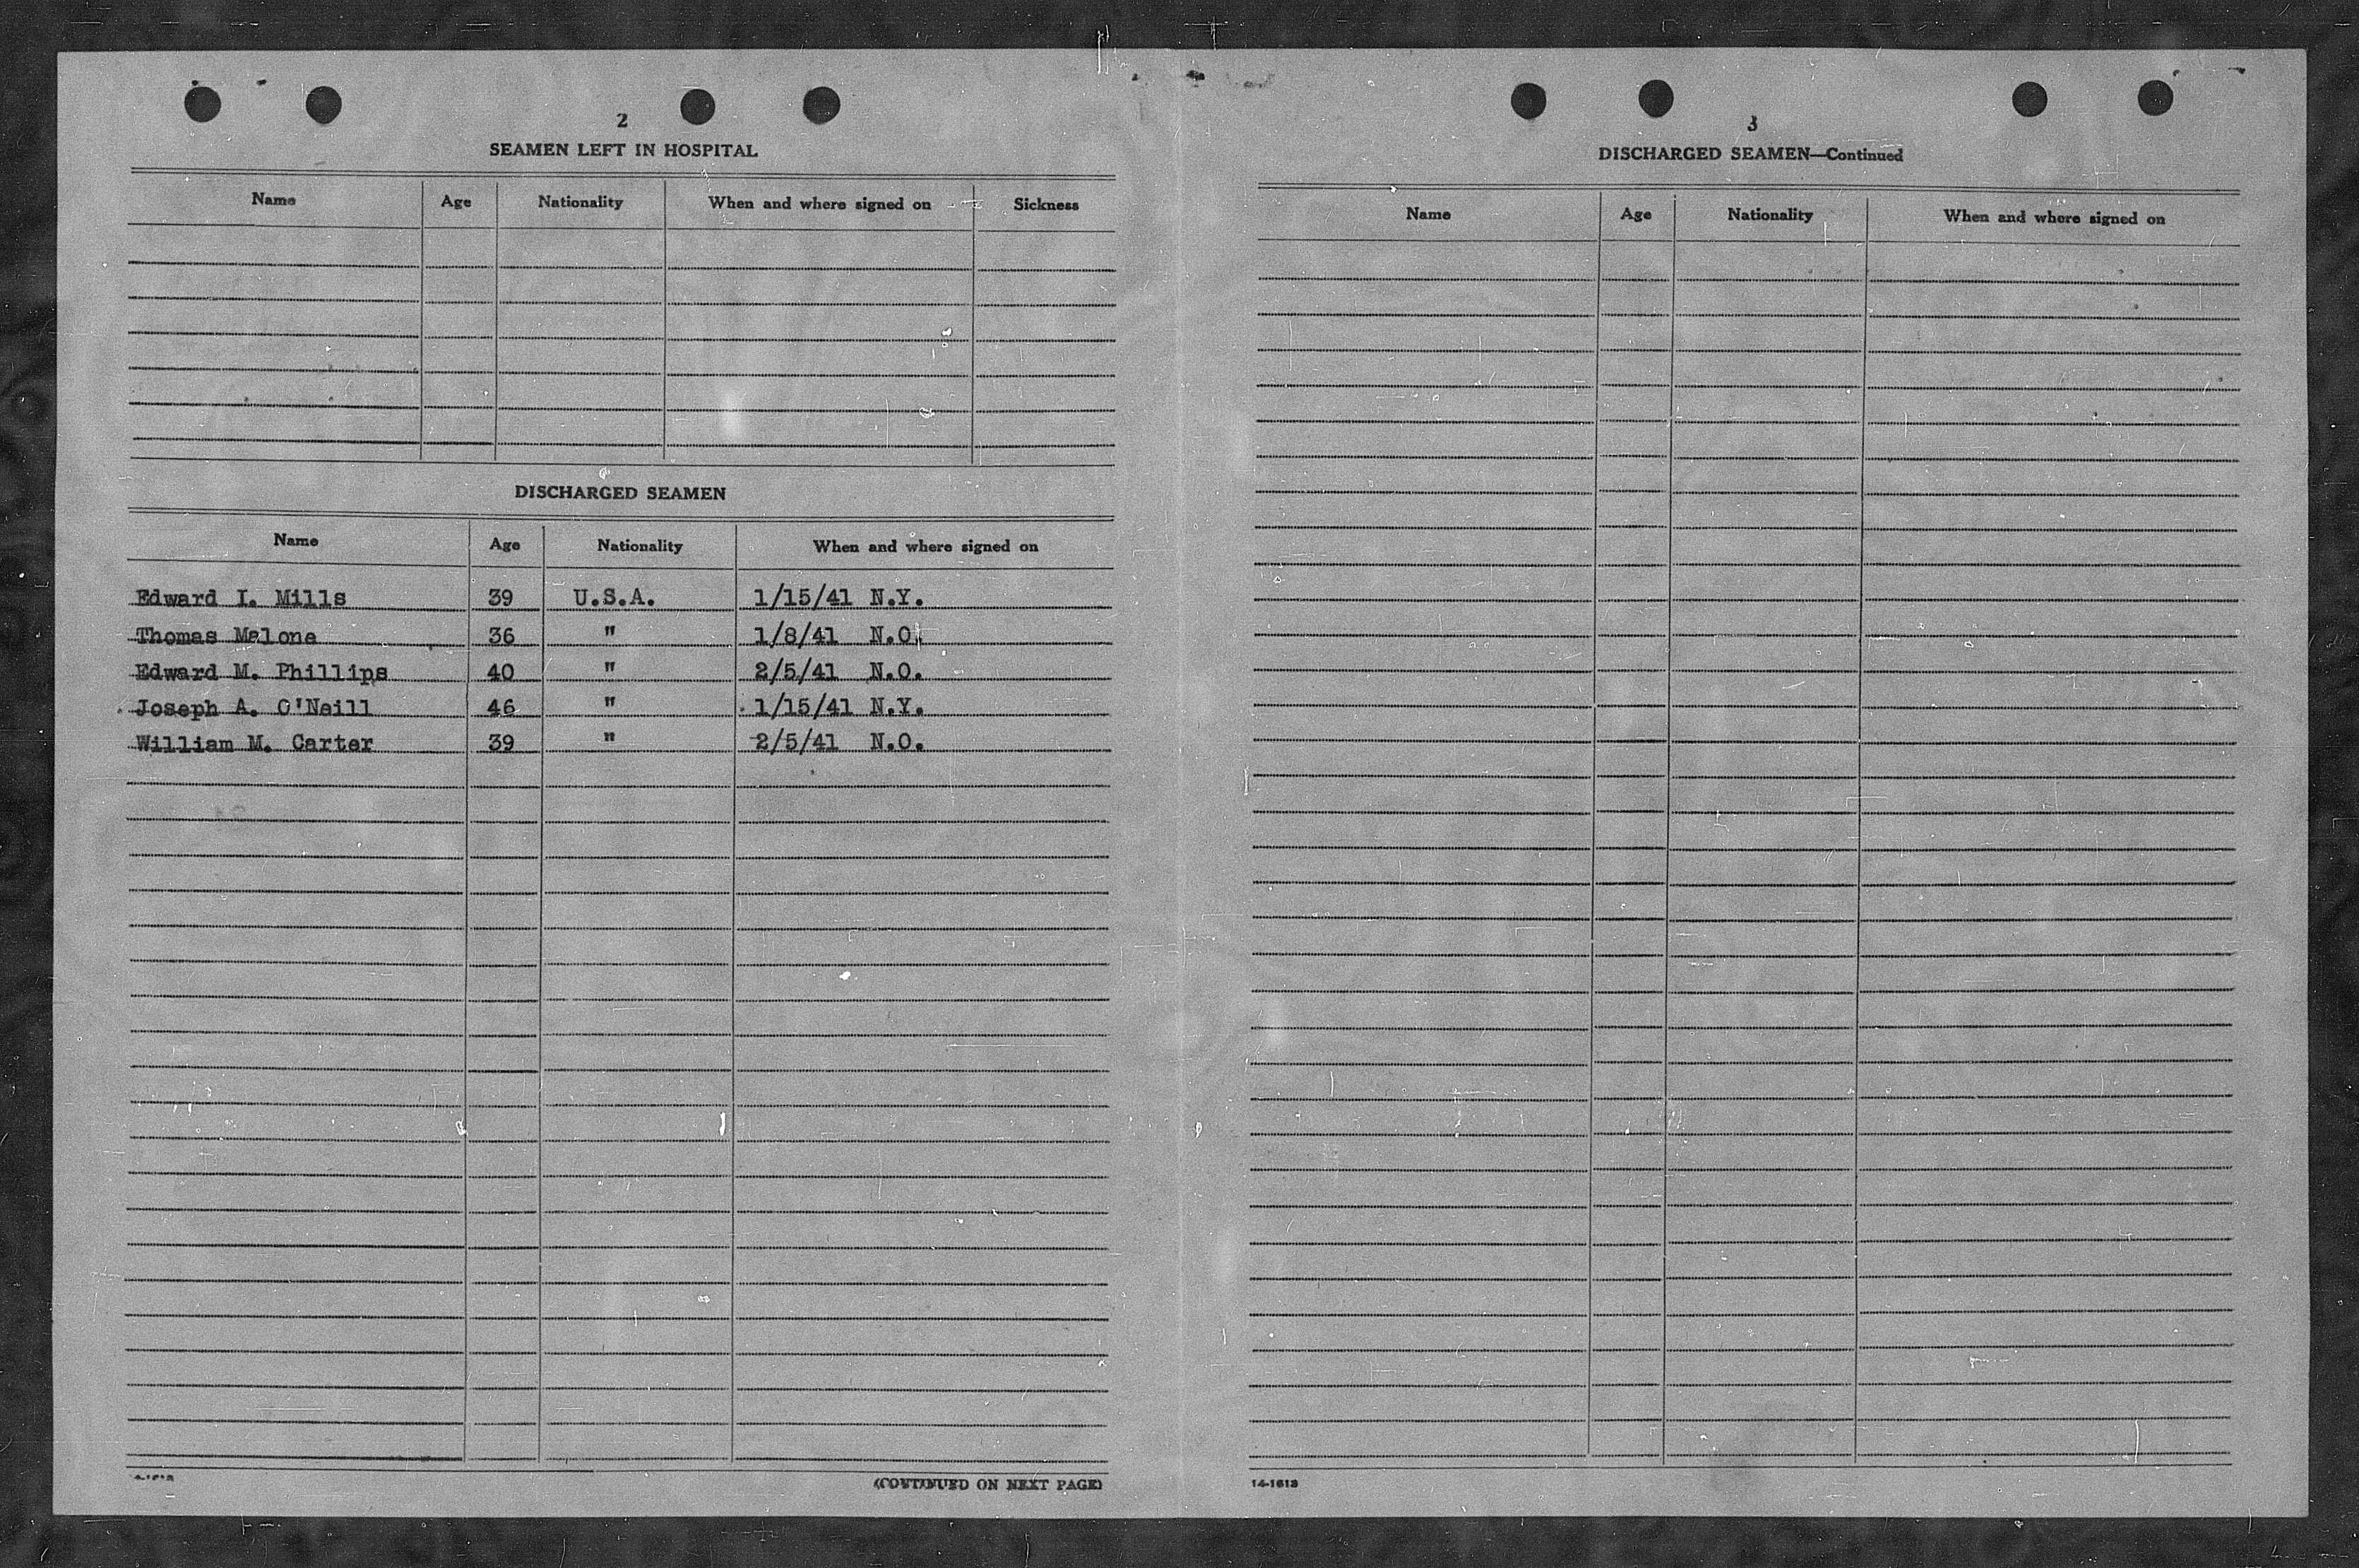 2
SEAMEN LEFT IN HOSPITAL
Name Age Nationality When and where signed on Sickness
DISCHARGED SEAMEN
Name Age Nationality When and where signed on
Edward I. Mills 39 U.S.A. 1/15/41 N.Y.
Thomas Malone 36 " 1/8/41 N.O.
Edward M. Phillips 40 " 2/5/41 N.O.
Joseph A. O'Neill 46 " 1/15/41 N.Y.
William M. Carter 39 " 2/5/41 N.O.
(CONTINUED ON NEXT PAGE)
3
DISCHARGED SEAMEN—Continued
Name Age Nationality When and where signed on
14-1613